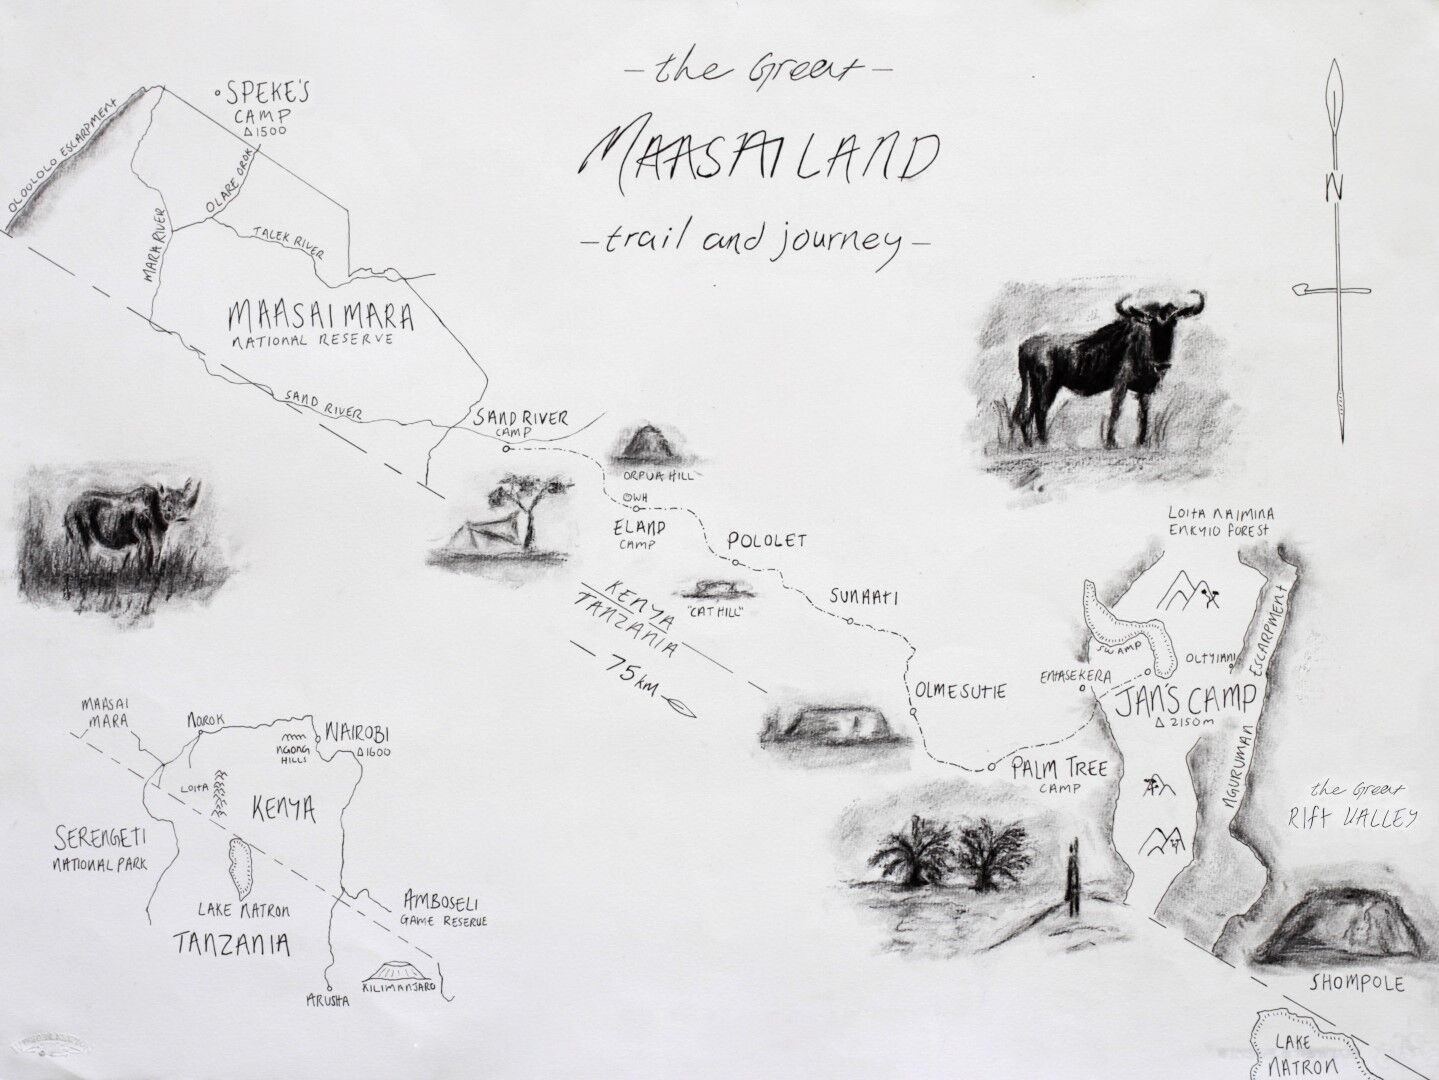 - the Great -
MAASAI LAND
- trail and journey -
SPEKE'S
CAMP
Δ1500
OLOULOLO ESCARPMENT
OLARE OROK
MARA RIVER
TALEK RIVER
N
MAASAI MARA
NATIONAL RESERVE
SAND RIVER
SAND RIVER
CAMP
ORPUA HILL
WH
ELAND
CAMP
POLOLET
LOITA NAIMINA
ENKYIO FOREST
"CAT HILL"
SUNAATI
KENYA
TANZANIA
75 KM
SWAMP
OLTYIANI
ESCARPMENT
NGURUMAN
ENTASEKERA
JAN'S CAMP
Δ 2150m
OLMESUTIE
PALM TREE
CAMP
the Great
Rift VALLEY
SHOMPOLE
LAKE
NATRON
MAASAI
MARA
NAROK
NAIROBI
Δ1600
NGONG
HILLS
LOITA
KENYA
SERENGETI
NATIONAL PARK
LAKE NATRON
AMBOSELI
GAME RESERVE
TANZANIA
KILIMANJARO
ARUSHA